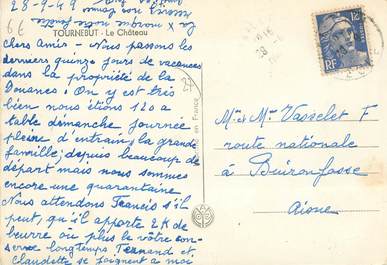 28-9-49
TOURNEBUT - Le Château
Chers Amis - Nous passons les
derniers quinze jours de vacances
dans la propriété de la
Douanes. On y est très
bien nous étions 120 a
table dimanche journée
pleine d'entrain, la grande
famille, depuis beaucoup de
départ mais nous sommes
encore une quarantaine
Nous attendons Francis s'il
peut, qu'il apporte 2K de
beurre ou plus le vôtre con-
serve longtemps Fernand et
Claudette se joignent a moi
en France
12F
RF
Mme et Mr Vasselet F
route nationale
à Buironfosse
Aisne